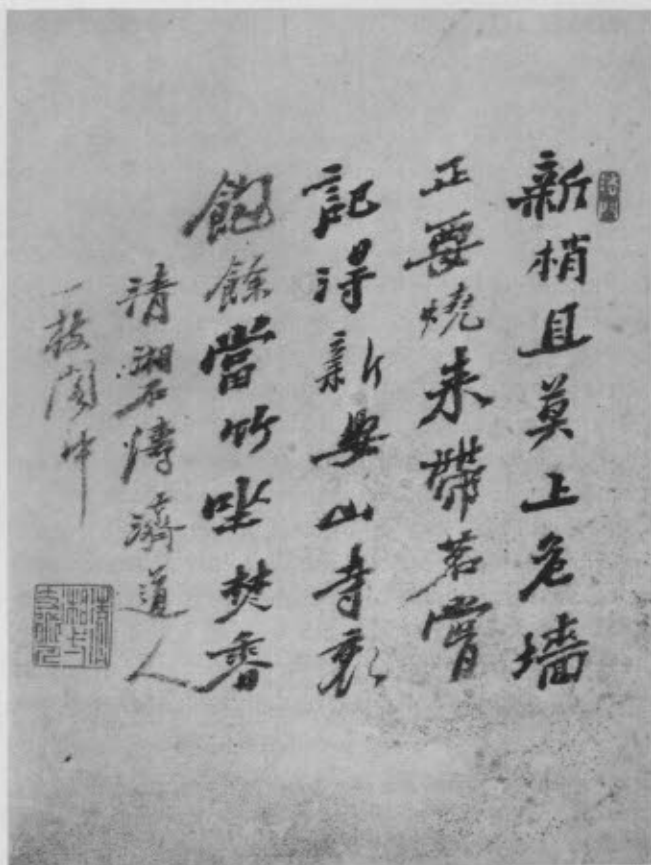 新梢且莫上危墻
正要燒来帶茗嘗
記得新安山寺裏
飽餘當竹坐焚香
清湘石濤濟道人
一枝閣中